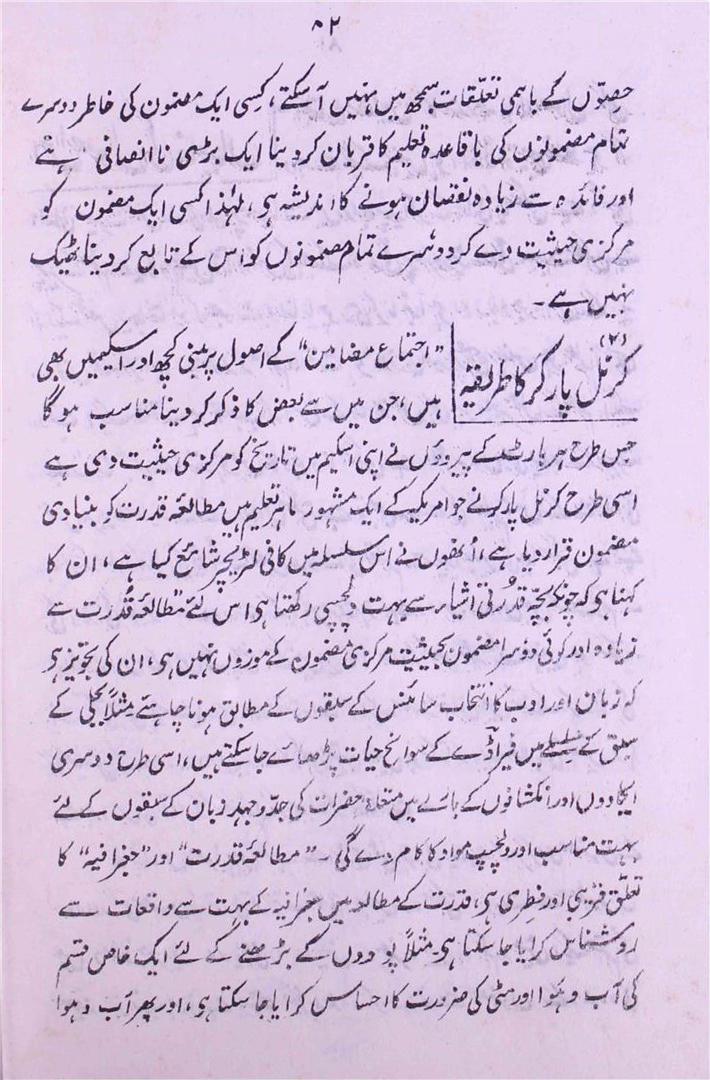 ۵۲
حصّوں کے باہمی تعلّقات سمجھ میں نہیں آسکتے، کسی ایک مضمون کی خاطر دوسرے
تمام مضمونوں کی باقاعدہ تعلیم کا قربان کردینا ایک بڑی ناانصافی ہے
اور فائدہ سے زیادہ نقصان ہونے کا اندیشہ ہی، لہٰذا کسی ایک مضمون کو
مرکزی حیثیت دے کر دوسرے تمام مضمونوں کو اس کے تابع کردینا ٹھیک
نہیں ہے۔
(۲)
کرنل پارکر کا طریقہ
”اجتماع مضامین“ کے اصول پر مبنی کچھ اور اسکیمیں بھی
ہیں، جن میں سے بعض کا ذکر کردینا مناسب ہوگا
جس طرح ہربارٹ کے پیروؤں نے اپنی اسکیم میں تاریخ کو مرکزی حیثیت دی ہے
اسی طرح کرنل پارکر نے جو امریکہ کے ایک مشہور ماہر تعلیم ہیں مطالعۂ قدرت کو بنیادی
مضمون قرار دیا ہے، اُنھوں نے اس سلسلہ میں کافی لٹریچر شائع کیا ہے، ان کا
کہنا ہو کہ چونکہ بچّہ قدرتی اشیاء سے بہت دلچسپی رکھتا ہی اس لئے مطالعۂ قدرت سے
زیادہ اور کوئی دوسرا مضمون بحیثیت مرکزی مضمون کے موزوں نہیں ہی، ان کی تجویز ہی
کہ زبان اور ادب کا انتخاب سائنس کے سبقوں کے مطابق ہونا چاہئے مثلاً بجلی کے
سبق کے سلسلے میں فیراڈے کے سوانح حیات پڑھائے جاسکتے ہیں، اسی طرح دوسری
ایجادوں اور انکشافوں کے بارے میں متعلقہ حضرات کی جدّوجہد زبان کے سبقوں کے لئے
بہت مناسب اور دلچسپ مواد کا کام دے گی۔ ”مطالعۂ قدرت“ اور ”جغرافیہ“ کا
تعلّق قریبی اور فطری ہی، قدرت کے مطالعہ میں جغرافیہ کے بہت سے واقعات سے
روشناس کرایا جاسکتا ہی مثلاً پودوں کے بڑھنے کے لئے ایک خاص قسم
کی آب و ہوا اور مٹی کی ضرورت کا احساس کرایا جاسکتا ہی، اور پھر آب و ہوا